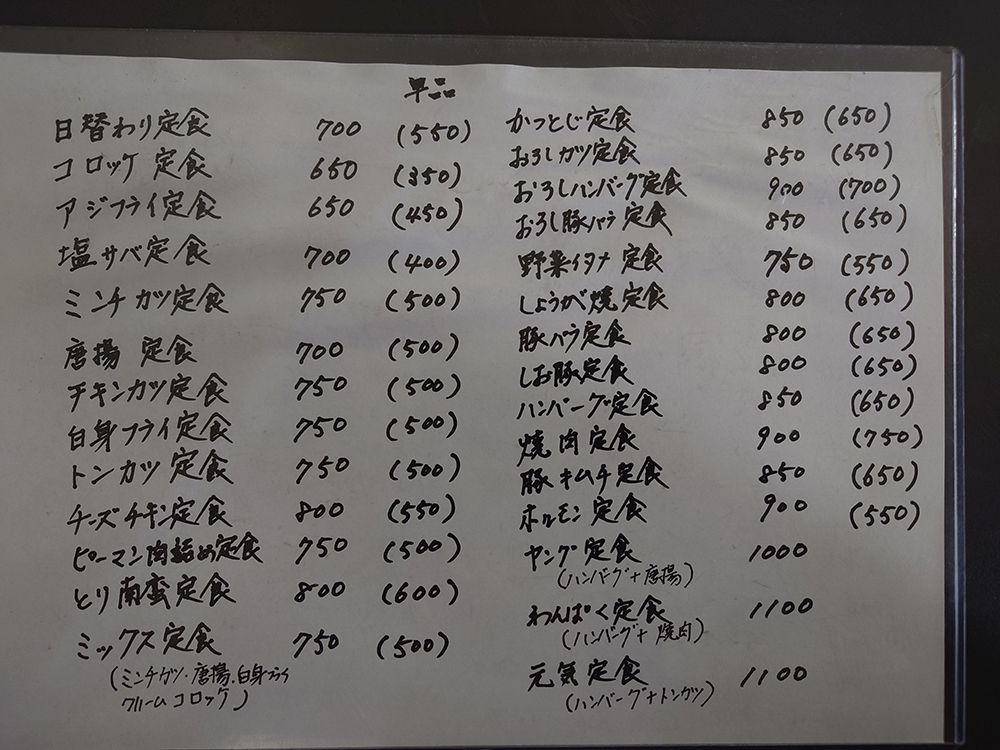 早品
日替わり定食 700 (550)
コロッケ定食 650 (350)
アジフライ定食 650 (450)
塩サバ定食 700 (400)
ミンチカツ定食 750 (500)
唐揚定食 700 (500)
チキンカツ定食 750 (500)
白身フライ定食 750 (500)
トンカツ定食 750 (500)
チーズチキン定食 800 (550)
ピーマン肉詰め定食 750 (500)
とり南蛮定食 800 (600)
ミックス定食 750 (500)
(ミンチカツ・唐揚・白身フライ
クリームコロッケ)
かつとじ定食 850 (650)
おろしカツ定食 850 (650)
おろしハンバーグ定食 900 (700)
おろし豚バラ定食 850 (650)
野菜イタメ定食 750 (550)
しょうが焼定食 800 (650)
豚バラ定食 800 (650)
しお豚定食 800 (650)
ハンバーグ定食 850 (650)
焼肉定食 900 (750)
豚キムチ定食 850 (650)
ホルモン定食 900 (550)
ヤング定食 1000
(ハンバーグ+唐揚)
わんぱく定食 1100
(ハンバーグ+焼肉)
元気定食 1100
(ハンバーグ+トンカツ)